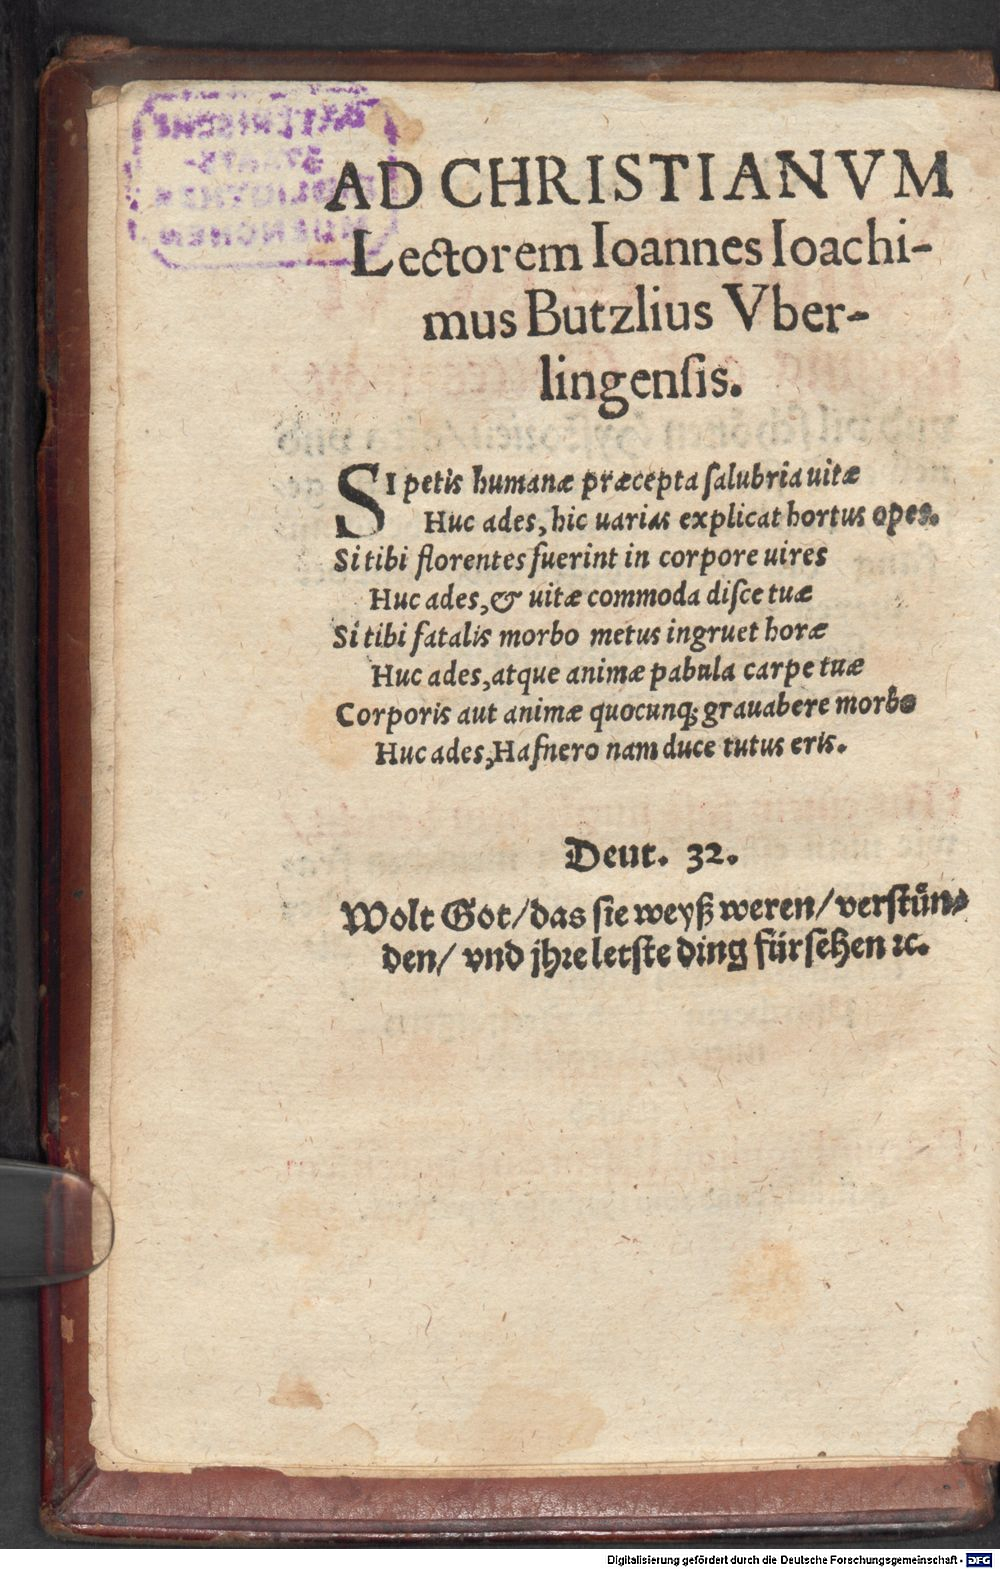 AD CHRISTIANVM
Lectorem Ioannes Ioachi-
mus Butzlius Vber-
lingenſis.
SI petis humanæ præcepta ſalubria uitæ
Huc ades, hic uarias explicat hortus opes.
Si tibi florentes fuerint in corpore uires
Huc ades, & uitæ commoda diſce tuæ
Si tibi fatalis morbo metus ingruet horæ
Huc ades, atque animæ pabula carpe tuæ
Corporis aut animæ quocunq; grauabere morbo
Huc ades, Hafnero nam duce tutus eris.
Deut. 32.
Wolt Got/das sie weyß weren/verstuͤn⸗
den/ vnd jhre letste ding fürsehen ꝛc.
Digitalisierung gefördert durch die Deutsche Forschungsgemeinschaft - DFG